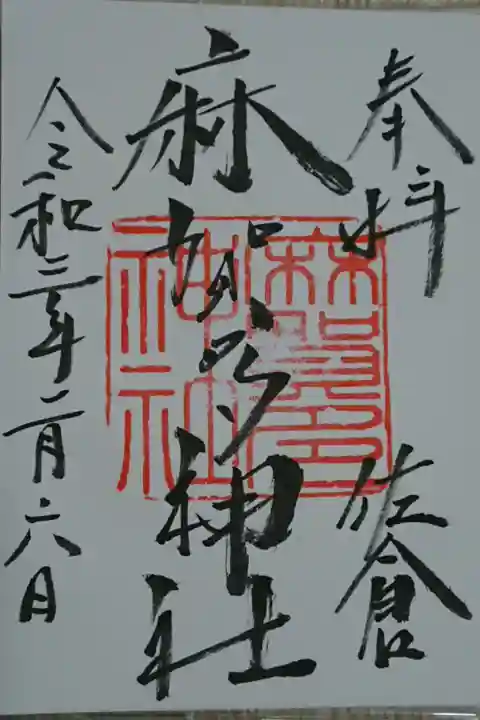 奉拝 佐倉
麻賀多神社
令和三年二月六日
麻賀多
神社